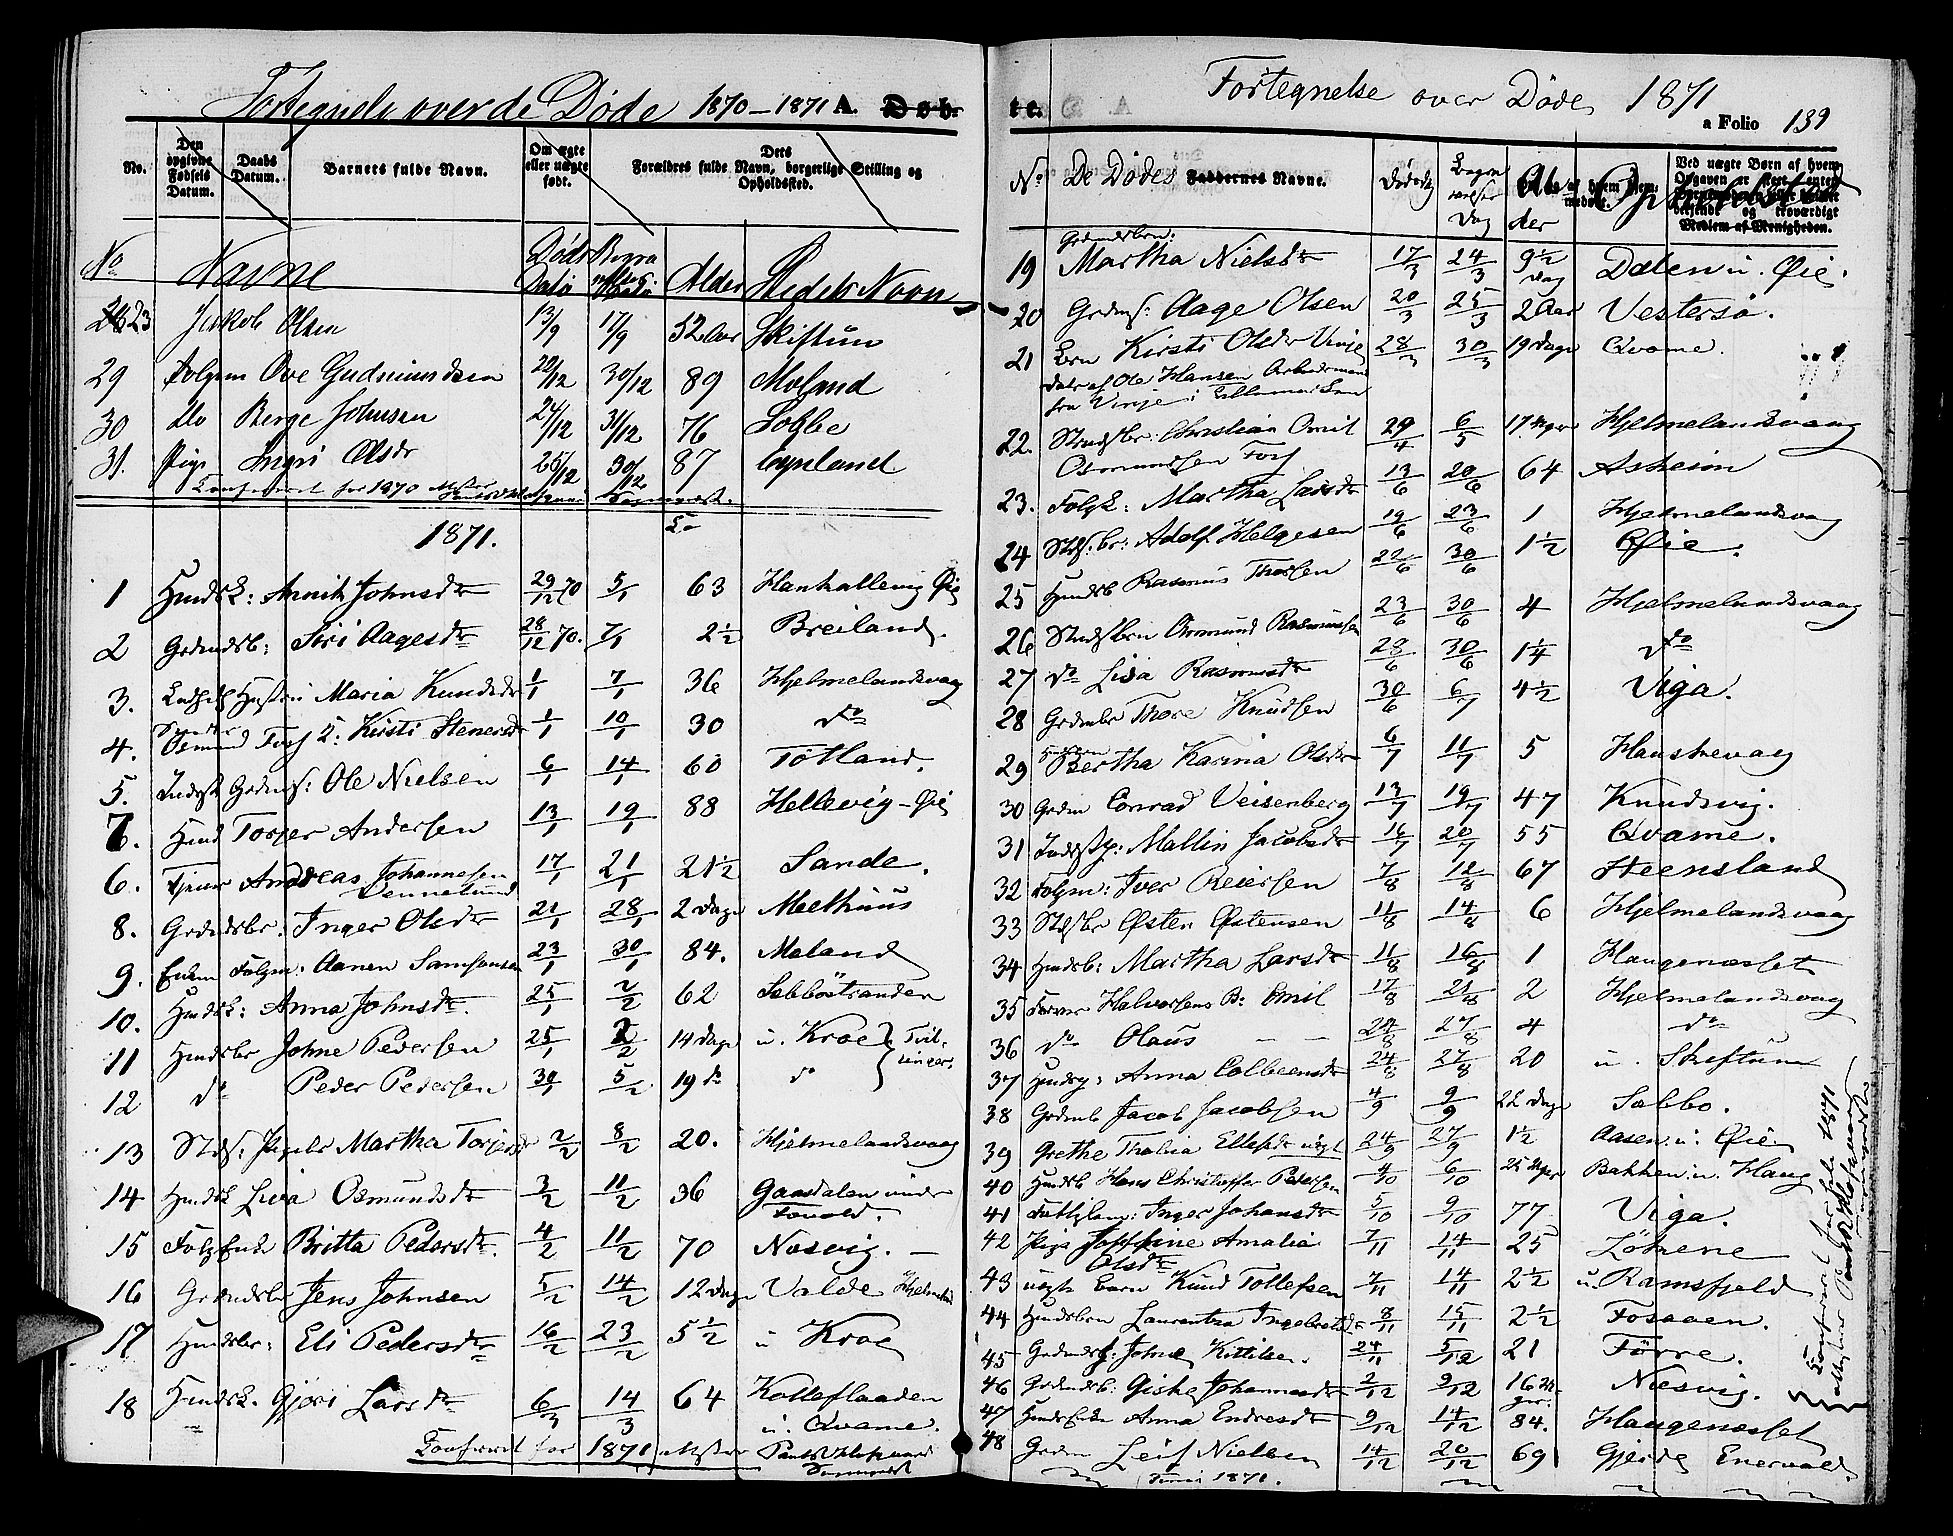 Fortegnelse over de Døde 1870-1871 A. Døb-
No.
Den opgivne Fødsels Datum.
Daabs Datum.
Barnets fulde Navn.
Om ægte eller uægte født.
Dets Forældres fulde Navn, borgerlige Stilling og Opholdssted.
No Navne Døds Datø Alder Stedets Navn
23 Jakob Olsen 13/9 17/9 52 Aar Skiftun
29 Folgem Ove Gudmundsen 20/12 30/12 89 Moland
30 Do Berge Johnsen 24/12 31/12 76 Sobbe
31. Pige Ingri Olsdr 25/12 30/12 87
Confereret for 1870
1871.
1 Hmdsk: Annik Johnsdr 29/12 70 5/1 63 Øie
2 Grdmdsb: Siri Aagesdr 28/12 70. 7/1 2½ Breiland.
3. Maria Knudsdr 1/1 7/1 36 Hjelmelandsvaag
4. Osmund Fosf 2: Kirsti Stenersdr 1/1 10/1 30 do
5. Indest Grdms: Ole Nielsen 6/1 14/1 60 Tøtland.
7. Hmd Torger Andersen 13/1 19/1 88 Hellevig - Øie
6. Tjener Andreas Johannesen Vennesund 17/1 21/1 21½ Sande.
8. Grdmdsbr. Inger Olsdr 21/1 28/1 2 Dage Melhuus
9. Enkem Folgm: Aanen Samsonsen 23/1 30/1 84. Moland
10. Hmdsk: Anna Johnsdr. 25/1 2/2 62 Sæbbøstranden
11 Hmdsbr Johne Pedersen 25/1 2/2 14 Dage u. Kroe } Tvil-
12 do Peder Pedersen 30/1 5/2 19 do do } linger.
13 Stds: Pigebr Martha Torjersdr 2/2 8/2 20. Hjelmelandsvaag
14 Hmdsk Liva Osmundsdr 3/2 11/2 36 Gaasdalen under
15 Folg Enke Britta Pedersdr. 4/2 11/2 70 Næsvig. -
16 Grdmdsbr Jens Johnsen 5/2 14/2 12 Dage Valde Hjelmeland
17 Hmdsbr: Eli Pedersdr 16/2 23/2 5½ u Kroe
18 Hmdsk. Gjøri Larsdr 6/3 14/3 64 Kolleflaaden u. Qvame.
Confereret for 1871
te.
Fortegnelse over Døde, 1871
a Folio 139
No De Dødes Faddernes Navne. Dødsdag Begravelses Dag Alder Opholdsted
Ved uægte Børn af hvem Opgaven er skeet, enten
Medlem af Menigheden.
Grdmdsbrn:
19 Martha Nielsdr 17/3 24/3 9½ Dag Dalen u. Øie.
20 Grdms: Aage Olsen 20/3 25/3 2 Aar Vestersø.
21 Brn Kirsti Olsdr Vinje 28/3 30/3 19 Dage Qvame.
Datr af Ole Hansen Arbeidsmand
fra Vinje i Tellemarken
22. Strdsbr: Christian Omil 29/4 6/5 17 Hjelmelandsvaag
Osmundsen Fosf
23. Folgk: Martha Larsdr 13/6 20/6 64 Asheim
24 Stds:br: Adolf Helgesen 19/6 23/6 1 Hjelmelandsvaag
25 Hmdsb Rasmus Thorsen 22/6 30/6 1½ Øie.
26 Stdsbrn Osmund Rasmussen 23/6 30/6 4 Hjelmelandsvaag
27 do Lisa Rasmusdr 28/6 30/6 1¼ do
28 Grdmbr Thore Knudsen 30/6 6/7 4½ Viga.
29 Bertha Karina Olsdr 6/7 11/7 5 Hauskevaag
30 Grdm Conrad Veisenberg 13/7 19/7 47 Knudsvig.
31 Mallin Jacobsdr 16/7 20/7 55 Qvame.
32 Folgm: Iver Reiersen 7/8 12/8 67 Steensland
33 Stdsbr Østen Østensen 11/8 14/8 6 Hjelmelandsvaag
34 Hmdsb: Martha Larsdr 11/8 16/8 1 Haugenæsset
35 Halvorsens B: Emil 17/8 21/8 2 Hjelmelandsvaag
36 do Olaus - - 24/8 27/8 4 do
37 Hmdsg: Anna Colbeensdr 24/8 27/8 20 u. Skiftun
38 Grdmb Jacob Jacobsen 4/9 9/9 22 Dage Sæbbø.
39 Grethe Thalia Ellefsdr uægt 24/9 27/9 1½ Aasen u. Øie
40 Hmdsb Hans Christoffer Pedersen 4/10 6/10 25 Bakken u. Haug
41 Inger Johansdr 5/10 9/10 77 Viga.
42 Pige Josefine Amalia Olsdr 7/11 14/11 25
43 uægte Barn Knud Tollefsen 7/11 14/11 2½ u. Ramsfjeld
44 Hmdsbrn Laurentza Ingebretsdr 8/11 15/11 2½ Fossaen.
45 Johne Kittilsen. 24/11 5/12 21 Førre.
46 Grdmdsb: Giske Johannesdr 2/12 9/12 16 Næsvig.
47 Hmds Enke Anna Endresdr 9/12 14/12 84. Haugenæsset
48 Grdm Leif Nielsen 14/12 20/12 69 Gjerde
1871.
Confereret for Aaret 1871